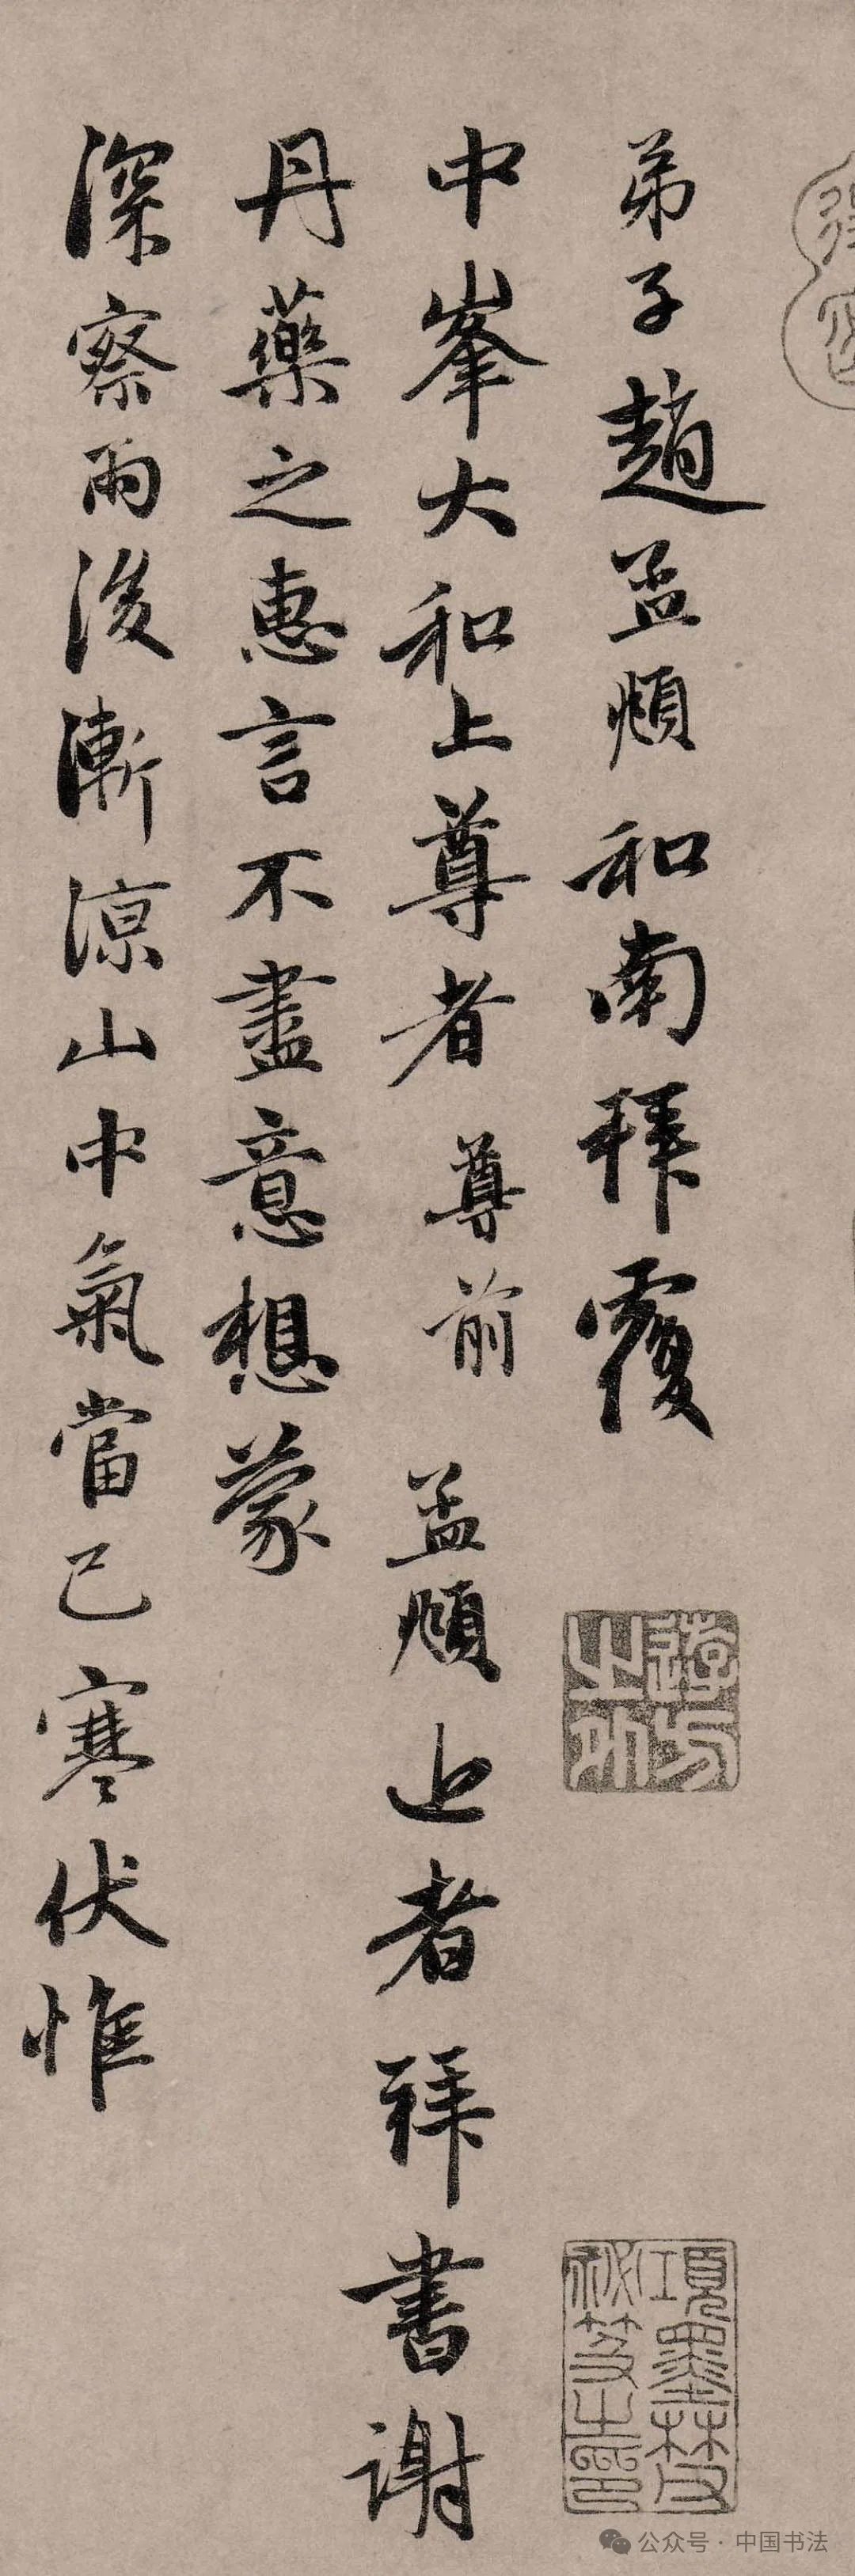 弟子趙孟頫和南拜覆
中峯大和上尊者 尊前 孟頫近者拜書謝
丹藥之惠言不盡意想蒙
深察雨後漸涼山中氣當已寒伏惟
項墨林父
祕笈之印
公众号·中国书法